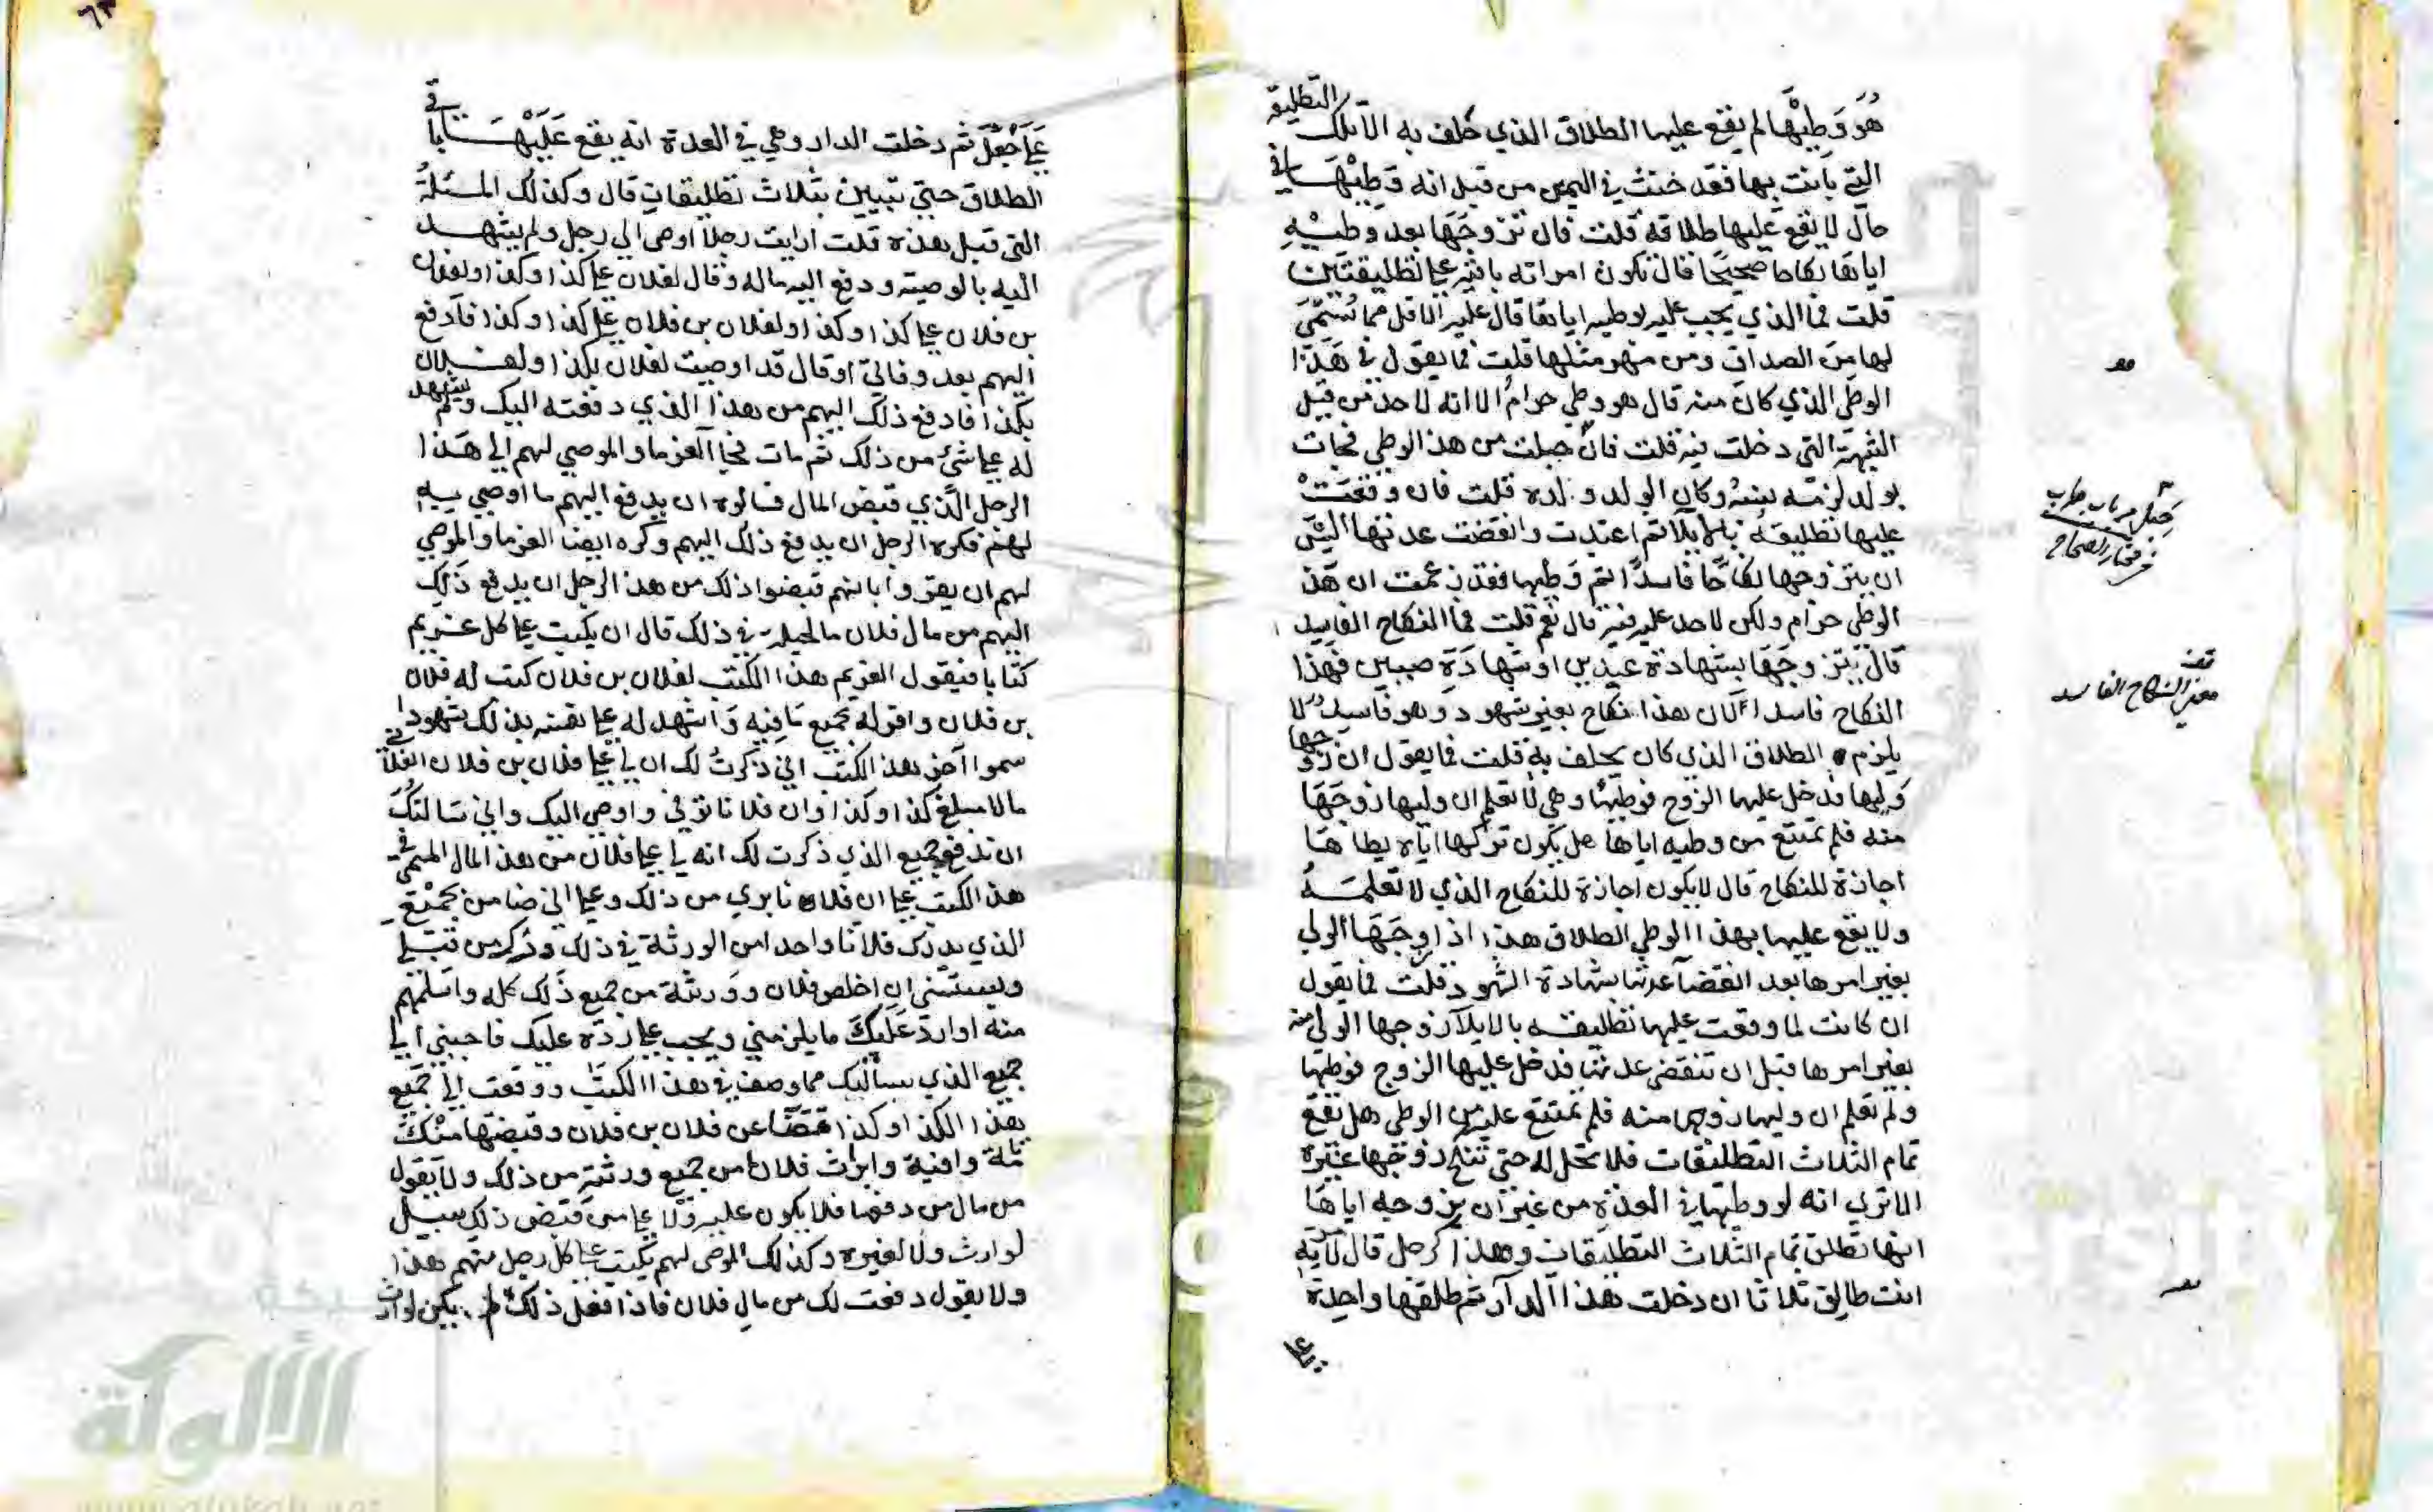 هُوَ وَطِيْهَا لم يقع عليها الطلاق الذي حلف به الا تلك التطليقة
التي بانت بها فقد حنث في اليمين من قبل انه وَطِيْهَا في
حال لا يقع عليها طلاقه قلت فان تزوجَهَا بعد وطيْهِ
اياها نكاحا صحيحًا قال تكون امراته باقية على تطليقتين
قلت فما الذي يجب عليه بوطيه اياها قال عليه الاقل مما سُمّيَ
لها من الصداق ومن مهر مثلها قلت فما يقول في هَذا
الوطي الذي كان منه قال هو وطي حرام الا انه لا حد من قبل
الشبهة التي دخلت فيه قلت فان حبلت من هذا الوطي فجات
بولد لزمه نسبه وكان الولد ولده قلت فان وقعَتْ
عليها تطليقة بالايلا ثم اعتدت وانقضت عدتها الي
ان يتزوجها نكاحًا فاسدًا ثم وَطيها فقد زعمت ان هذا
الوطي حرام ولكن لا حد عليه فيه قال نعم قلت فما النكاح الفاسد
قال يتزوجَهَا بشهادة عبدين او شهادَة صبيين فهذا
النكاح فاسد لان هذا نكاح بغير شهود وهو فاسد ولا
يلزم الطلاق الذي كان يحلف به قلت فما يقول ان زوجها
وَليها فدخل عليها الزوج فوطيها وهي لا تعلم ان وليها زوجَهَا
منه فلم تمتنع من وطيه اياها هل يكون تركها اياه يطاها
اجازة للنكاح قال لا يكون اجازة للنكاح الذي لا تعلمه
ولا يقع عليها بهذا الوطي الطلاق هذا اذا زوجَهَا الولي
بغير امرها بعد انقضا عدتها بشهادة الشهود قلت فما يقول
ان كانت لما وقعت عليها تطليقة بالايلآ زوجها الولي منه
بغير امرها قبل ان تنقضي عدتها فدخل عليها الزوج فوطيها
ولم تعلم ان وليها زوجها منه فلم تمتنع عليه من الوطي هل يقع
تمام الثلاث التطليقات فلا تحل له حتى تنكح زوجًا غيره
الا تري انه لو وطيها في العدة من غير ان يزوجه اياها
انها تطلق تمام الثلاث التطليقات وهذا كرجل قال لامراته
انت طالق ثلاثا ان دخلت هذا الدار ثم طلقها واحدة
معنى النكاح الفاسد
على جعل ثم دخلت الدار وهي في العدة انه يقع عَلَيْهَا باقي
الطلاق حتى تبيين بثلاث تطليقات قال وكذلك المسئلة
التي قبل هذه قلت ارايت رجلا اوصي الي رجل ولم يشهد
اليه بالوصية ودفع اليه ماله وقال لفلان علي كذا وكذا ولفلان
بن فلان علي كذا وكذا ولفلان بن فلان علي كذا وكذا فادفع
اليهم بعد وفاتي او قال قد اوصيت لفلان بكذا ولفلان
بكذا فادفع ذلك اليهم من هذا الذي دفعته اليك ولم يشهد
له علي شئ من ذلك ثم مات فجا الغرما والموصي لهم الي هَذا
الرجل الَّذي قبض المال فسالوه ان يدفع اليهم ما اوصي به
لهم فكره الرجل ان يدفع ذلك اليهم وكره ايضا الغرما والموصي
لهم ان يقروا بانهم قبضوا ذلك من هذا الرجل ان يدفع ذَلك
اليهم من مال فلان ما الحيلة في ذلك قال ان يكتب علي كل غريم
كتابا فيقول الغريم هذا الكتب لفلان بن فلان كتب له فلان
بن فلان واقر له بجميع مَا فيه وَاشهد له على نفسه بذلك شهودا
سموا آخر هذا الكتب اني ذكرتُ لك ان لي علي فلان بن فلان الفلاني
مالا مبلغ كذا وكذا وان فلانا توفي واوصي اليك واني سَالتكَ
ان تدفع جميع الذي ذكرت لك انه لي علي فلان من هذا المال المسمى في
هذا الكتب علي ان فلانا بري من ذلك وعلي اني ضامن بجميع
الذي يدرك فلانا واحدا من الورثة في ذلك ودَرك من قبلي
وبسببي ان اخلص فلان وورثة من جميع ذَلك كله واسلمهم
منه او ارد عَلَيكَ ما يلزمني ويجب علي ردّه عليك فاجبني الي
جميع الذي يسألك مما وصف في هذا الكتب ودفعت الي جميع
هذا الكذا وكذا قضَآ عن فلان بن فلان وقبضتها منك
تامة وافية وابرات فلانا من جميع ورثته من ذلك ولا يقول
من مال من دفعها فلا يكون عليه ولا علي من قبض ذلك سبيل
لوارث ولا لغيره وكذلك الموصى لهم يكتب على كل رجل منهم هذا
ولا يقول دفعت لك من مال فلان فاذا فعل ذلك لم يكن لوارث
الألوكة
www.alukah.net